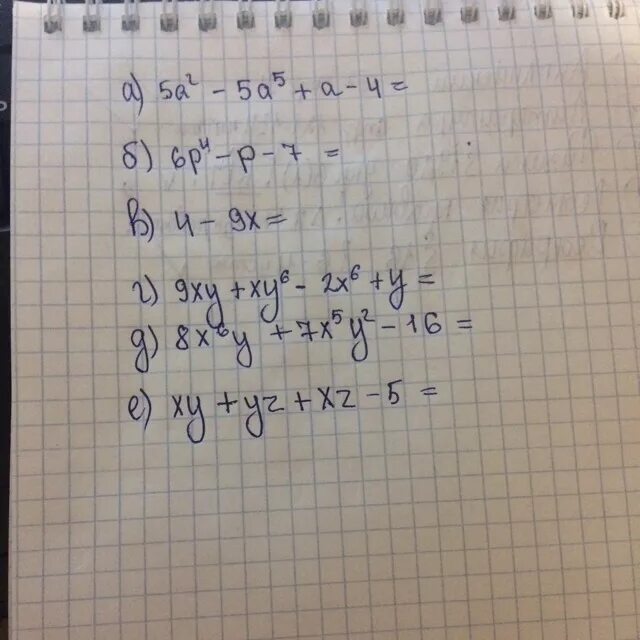 а) 5a² - 5a⁵ + a - 4 =
б) 6p⁴ - p - 7 =
в) 4 - 9x =
г) 9xy + xy⁶ - 2x⁶ + y =
д) 8x⁶y + 7x⁵y² - 16 =
е) xy + yz + xz - 5 =